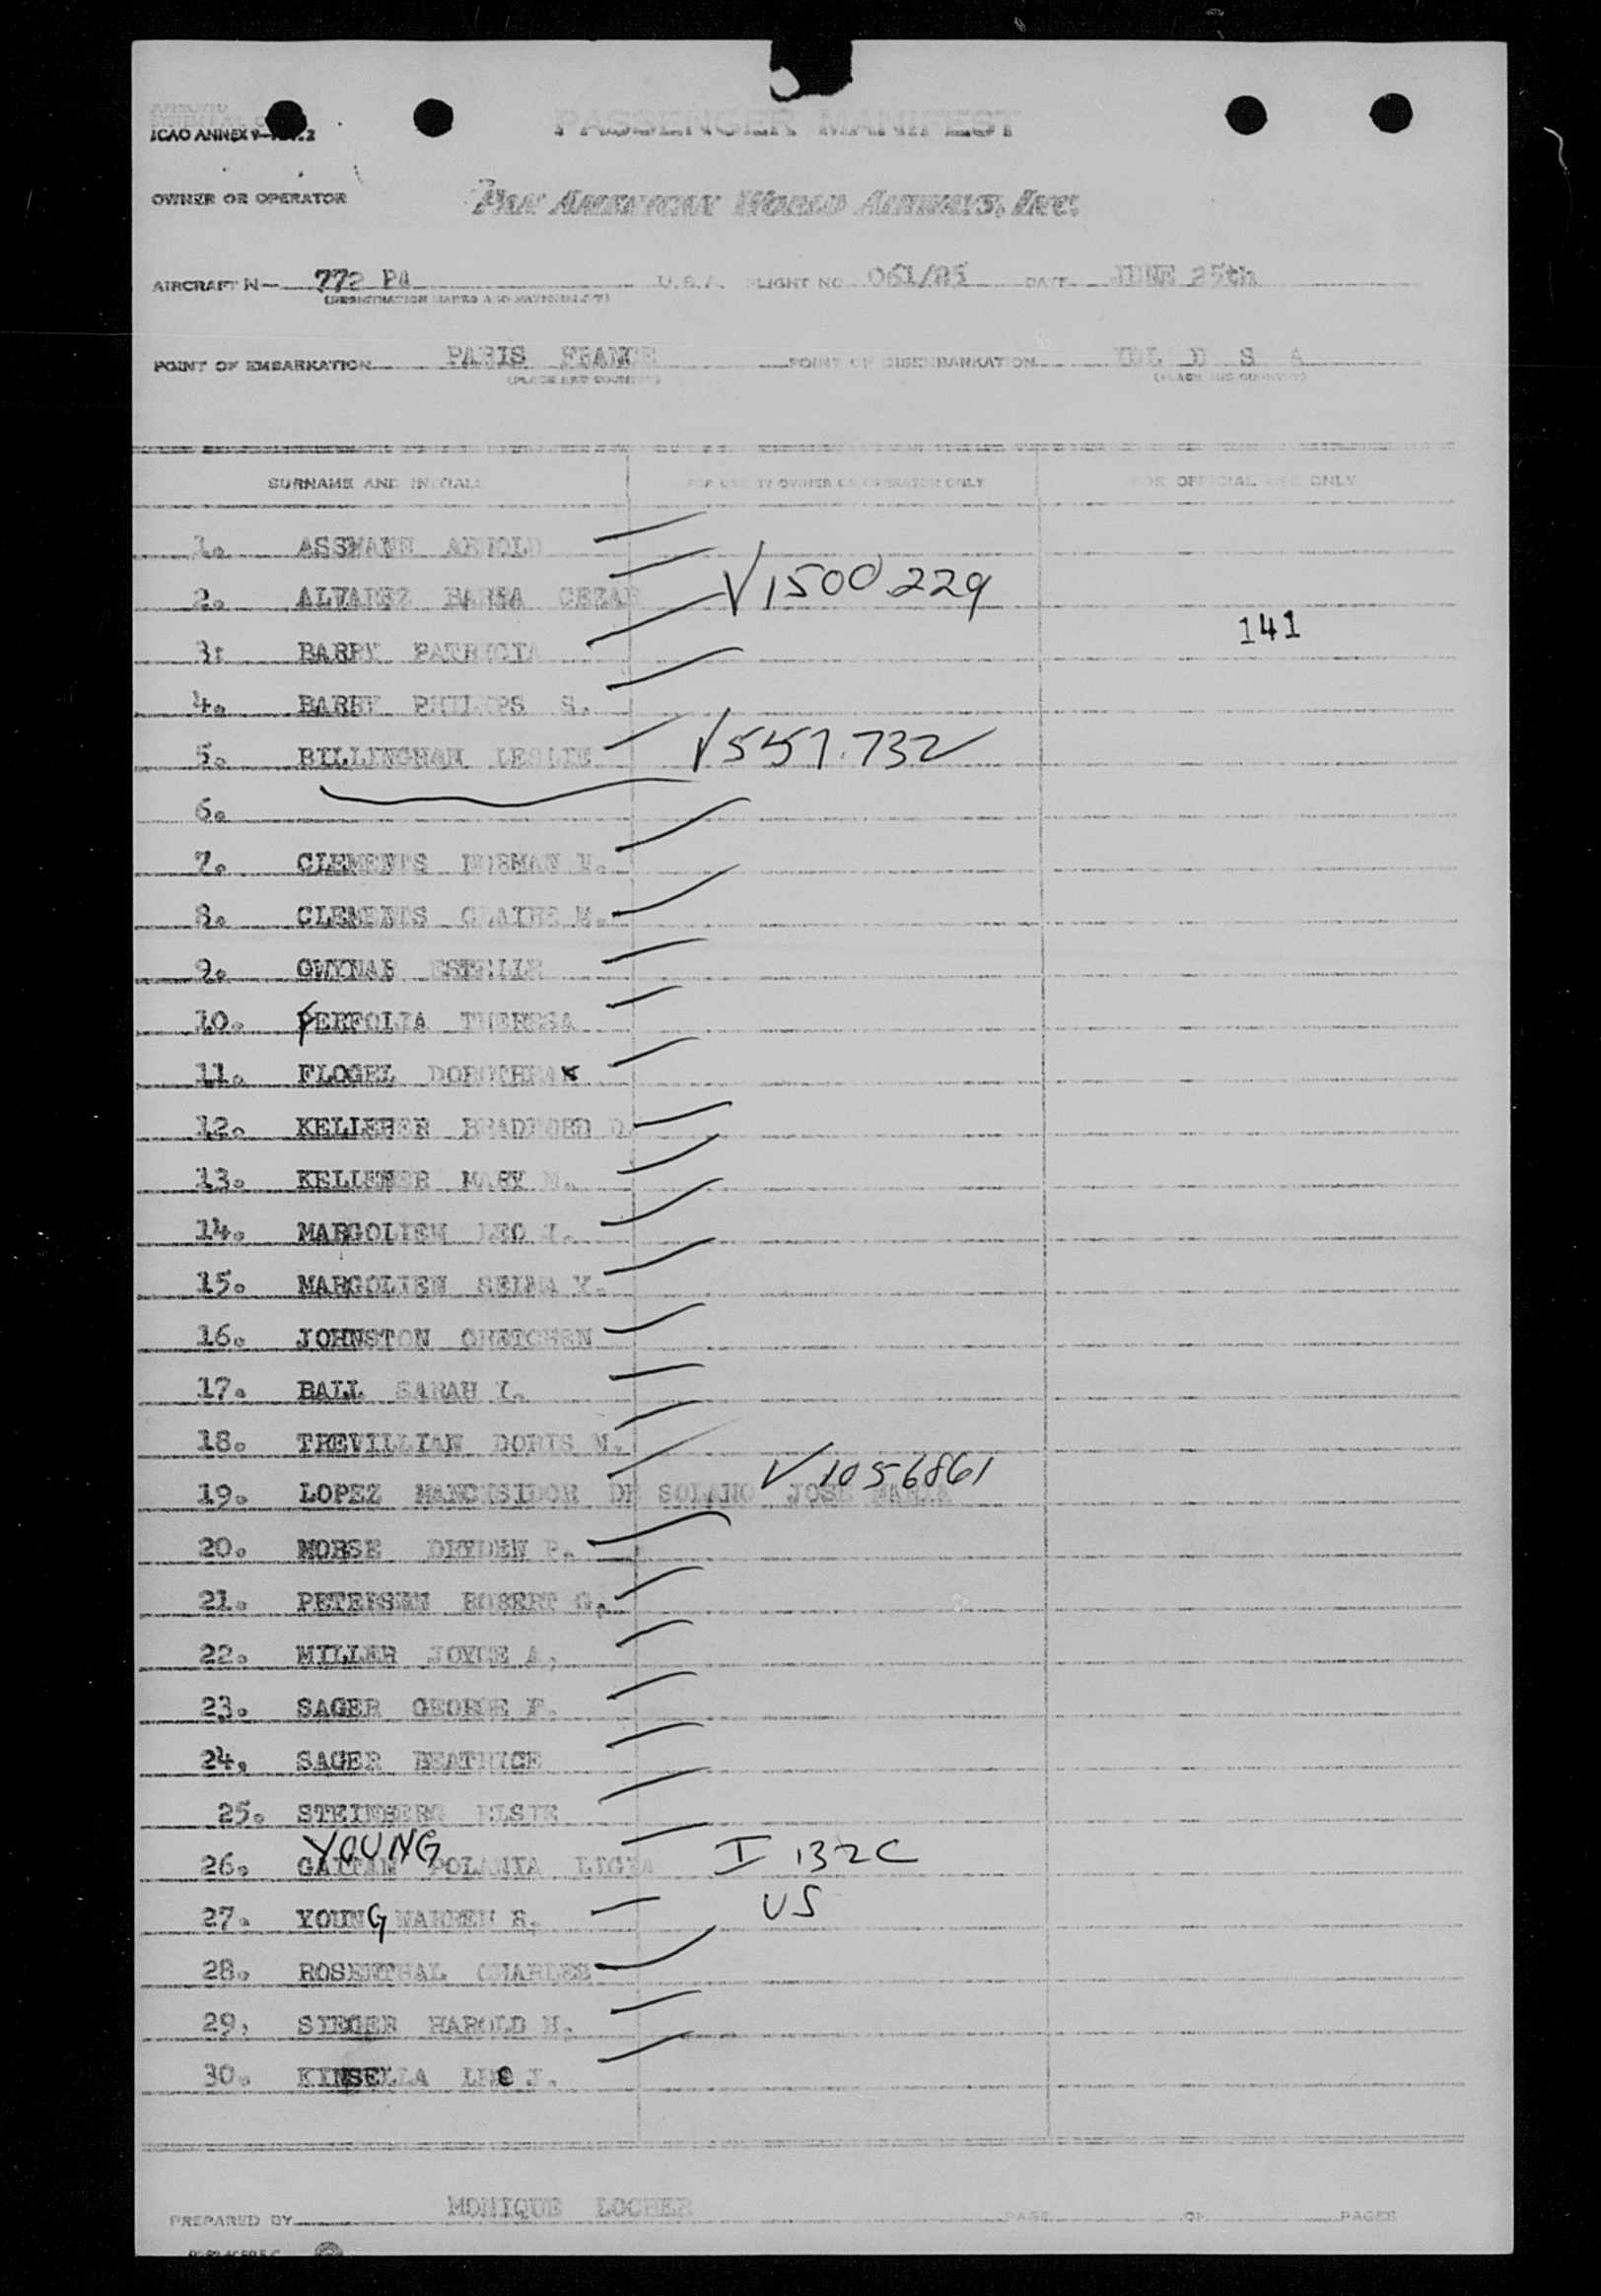 ICAO ANNEX 9
PASSENGER MANIFEST
OWNER OR OPERATOR PAN AMERICAN WORLD AIRWAYS, INC.
AIRCRAFT N— 772 PA U.S.A. FLIGHT NO 061/25 DATE JUNE 25th
(REGISTRATION MARKS AND NATIONALITY)
POINT OF EMBARKATION PARIS FRANCE POINT OF DISEMBARKATION IDL U S A
(PLACE AND COUNTRY) (PLACE AND COUNTRY)
SURNAME AND INITIALS FOR USE BY OWNER OR OPERATOR ONLY FOR OFFICIAL USE ONLY
1. ASSMANN ARNOLD
2. ALVAREZ BARBA CEZAR V1500229
141
3: BARRY PATRICIA
4. BARRY PHILIPS S.
5. BILLINGHAM LESLIE V557.732
6.
7. CLEMENTS NORMAN
8. CLEMENTS CLAIRE M.
9. GWYNAR ESTELLE
10. FERFOLIA THERESA
11. FLOGEL DOROTHEA
12. KELLEHER BRADFORD
13. KELLEHER MARY M.
14. MARGOLIEN LEO I.
15. MARGOLIEN SELMA Y.
16. JOHNSTON GRETCHEN
17. BALL SARAH I.
18. TREVILLIAN DORIS M.
19. LOPEZ MANCISIDOR DE SOLANO JOSE MARIA V1056861
20. MORSE DRYDEN P.
21. PETERSEN ROBERT G.
22. MILLER JOYCE A.
23. SAGER GEORGE F.
24, SAGER BEATRICE
25. STEINBERG ELSIE
YOUNG
26. GAITAN POLANIA LIGIA I 132C
27. YOUNG WARREN R. US
28. ROSENTHAL CHARLES
29, SIEGER HAROLD H.
30. KINSELLA LEO J.
PREPARED BY MONIQUE LOCHER PAGE OF PAGES